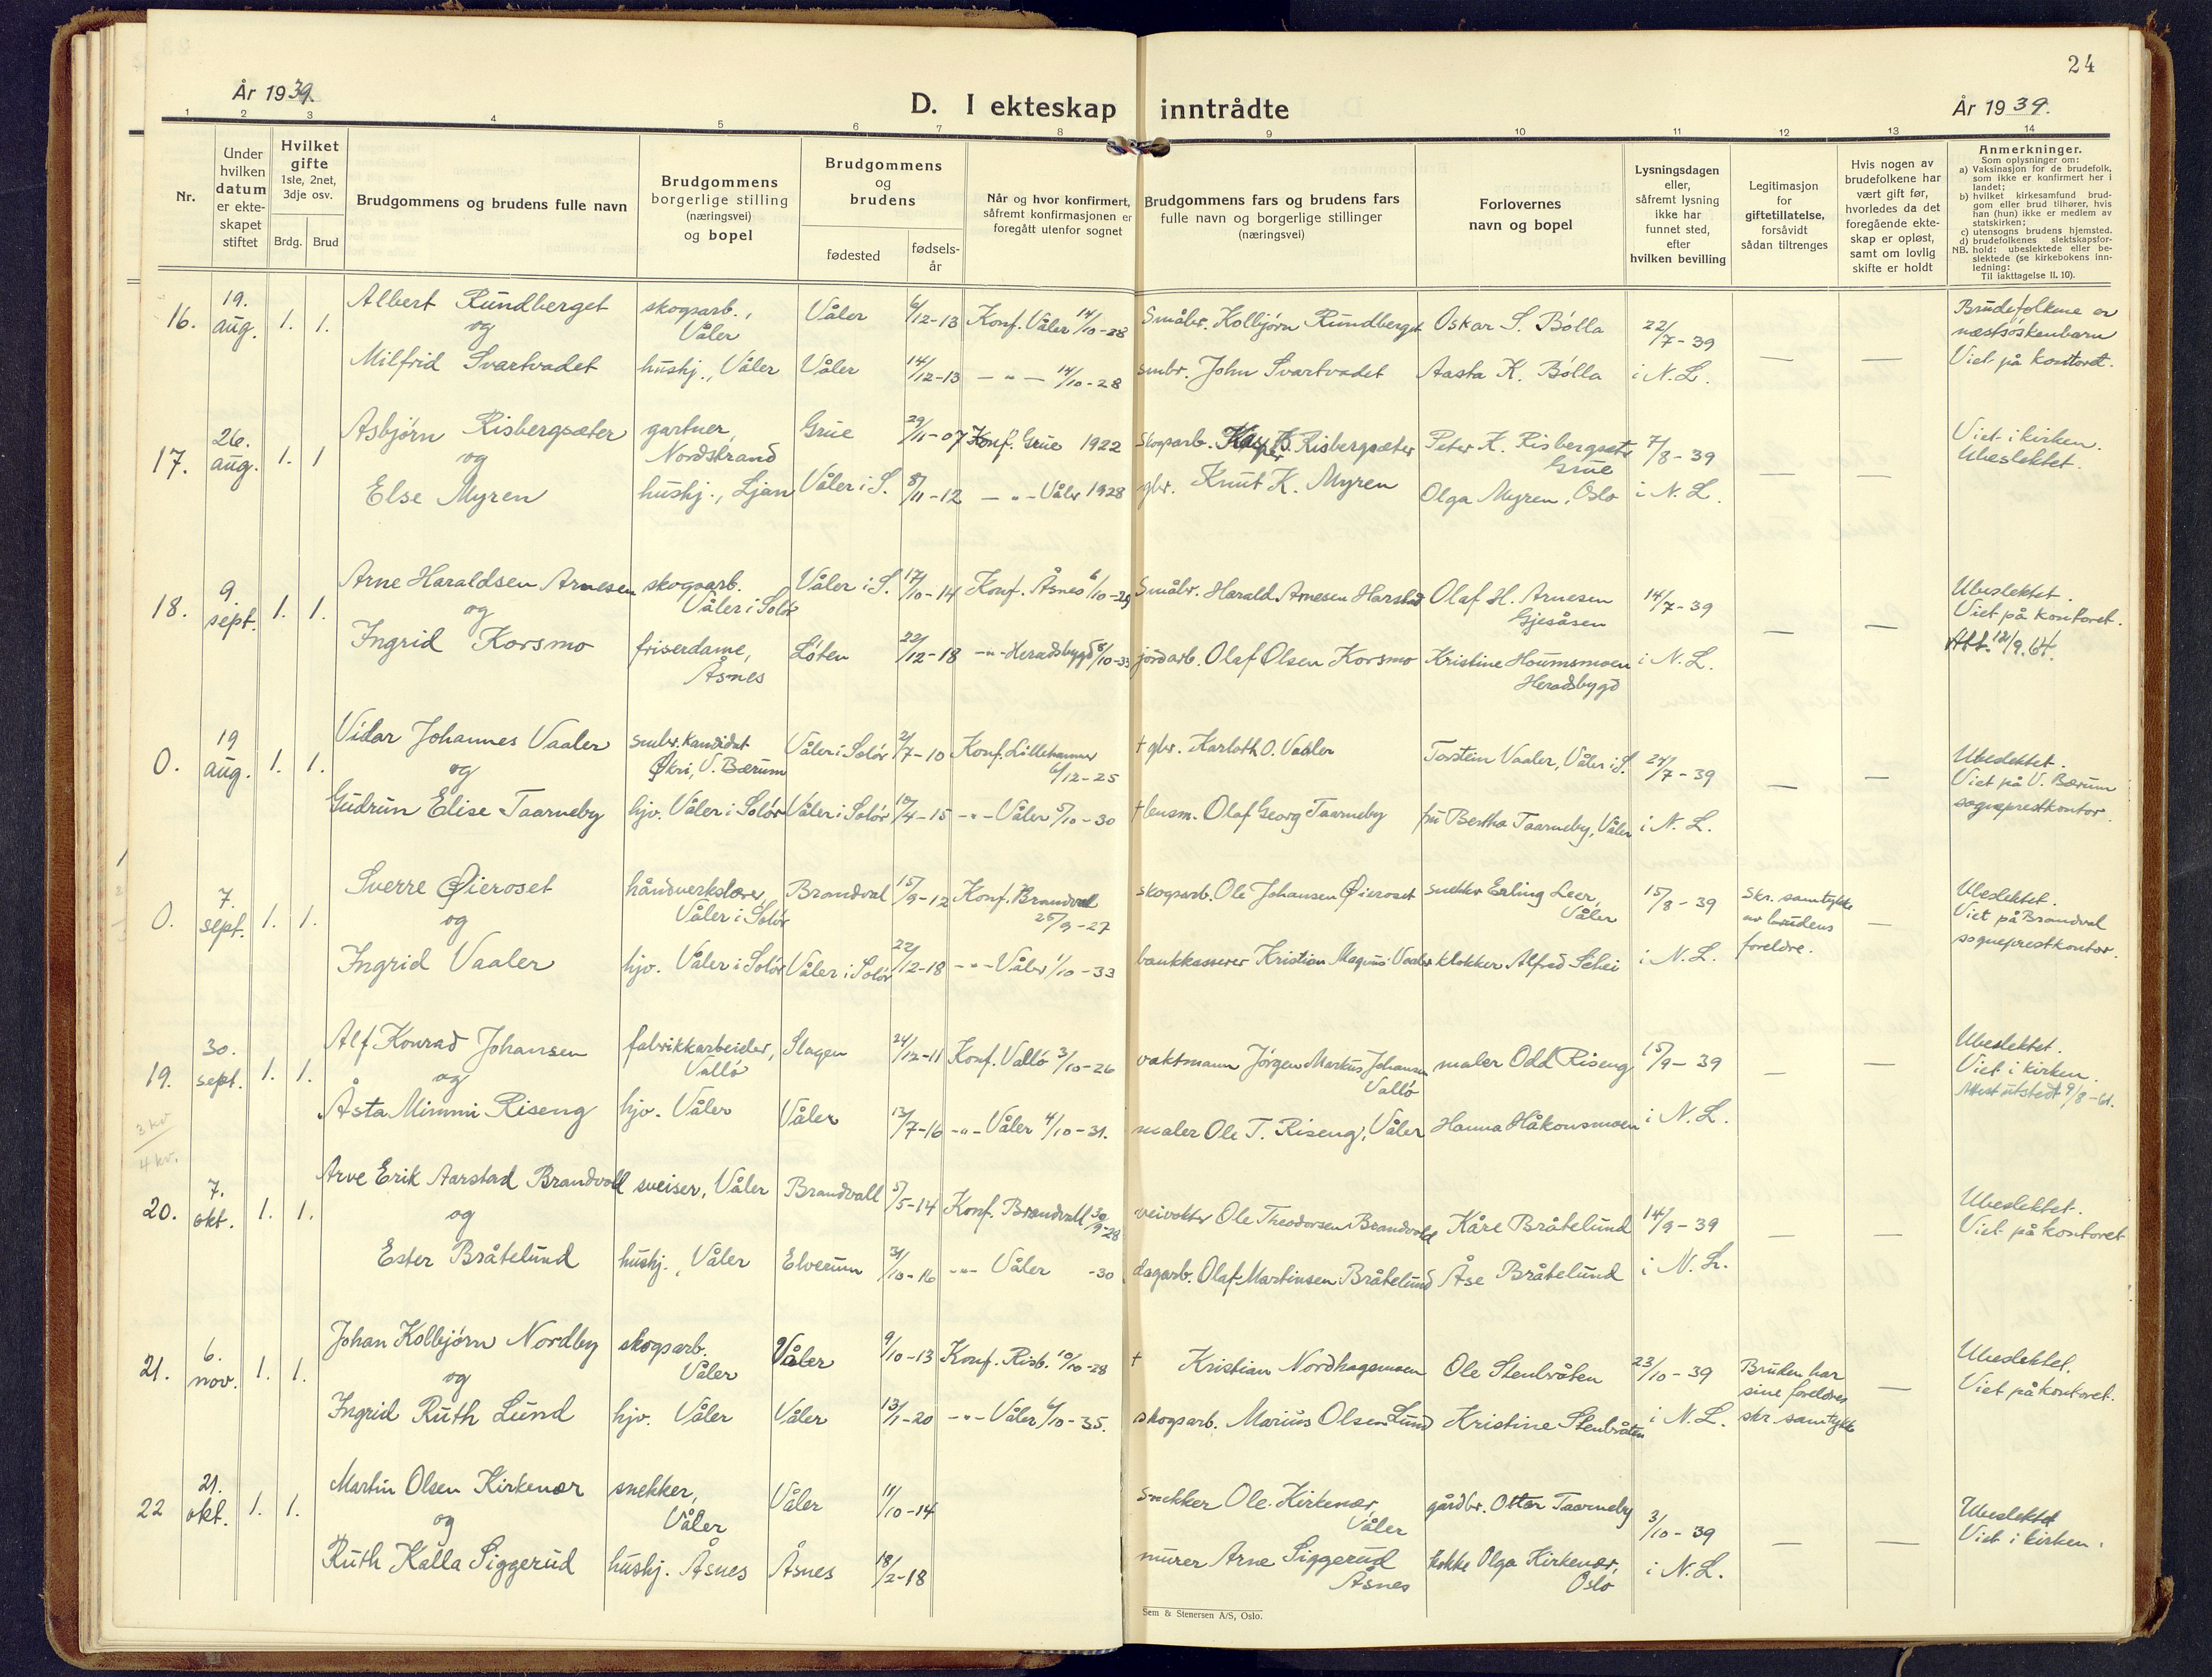 24
År 1939.
D. I ekteskap inntrådte
År 1939.
1 2 3 4 5 6 7 8 9 10 11 12 13 14
Nr.
Under hvilken datum er ekteskapet stiftet
Hvilket gifte 1ste, 2net, 3dje osv.
Brdg. Brud
Brudgommens og brudens fulle navn
Brudgommens borgerlige stilling (næringsvei) og bopel
Brudgommens og brudens
fødested
fødsels-år
Når og hvor konfirmert, såfremt konfirmasjonen er foregått utenfor sognet
Brudgommens fars og brudens fars fulle navn og borgerlige stillinger (næringsvei)
Forlovernes navn og bopel
Lysningsdagen eller, såfremt lysning ikke har funnet sted, efter hvilken bevilling
Legitimasjon for giftetillatelse, forsåvidt sådan tiltrenges
Hvis nogen av brudefolkene har vært gift før, hvorledes da det foregående ekteskap er opløst, samt om lovlig skifte er holdt
Anmerkninger.
Som oplysninger om:
a) Vaksinasjon for de brudefolk, som ikke er konfirmert her i landet;
b) hvilket kirkesamfund brudgom eller brud tilhører, hvis han (hun) ikke er medlem av statskirken;
c) utensogns brudens hjemsted.
d) brudefolkenes slektskapsforhold: ubeslektede eller beslektede (se kirkebokens innledning:
NB.
Til iakttagelse II. 10).
16. 19. aug. 1. 1. Albert Rundberget skogsarb., Våler Våler 6/12-13 Konf. Våler 14/10-28 Småbr. Kolbjørn Rundberget Oskar S. Bölla 22/7-39 Brudefolkene er næstsöskenbarn
og
Milfrid Svartvadet hushj., Våler Våler 14/12-13 — " — 14/10-28 smbr. John Svartvadet Aasta K. Bölla i N.L. — — Viet på kontoret.
17. 26. aug. 1. 1 Asbjørn Risbergsæter gartner, Nordstrand Grue 29/11-07 Konf. Grue 1922 Skogsarb. Kasper B. Risbergsæter Peter K. Risbergsæter Grue 7/8-39 Viet i kirken.
og
Else Myren hushj., Ljan Våler i S. 8/11-12 — " — Våler 1928 gbr. Knut K. Myren Olga Myren, Oslo i N.L. — — Ubeslektet.
18. 9. sept. 1. 1. Arne Haraldsen Arnesen skogsarb. Våler i Solør Våler i S. 17/10-14 Konf. Åsnes 6/10-29 Småbr. Harald Arnesen Harstad Olaf H. Arnesen Gjesåsen 14/7-39 Ubeslektet. Viet på kontoret.
og
Ingrid Korsmo friserdame, Åsnes Löten 22/12-18 — " — Heradsbygd 8/10-33 jordarb. Olaf Olsen Korsmo Kristine Houmsmoen Heradsbygd i N.L. — — Att. 12/9.64.
0. 19 aug. 1. 1. Vidar Johannes Vaaler smbr. kandidat Økri, V. Bærum Våler i Solör 2/7-10 Konf. Lillehammer 6/12-25 † gbr. Karloth O. Vaaler Torstein Vaaler, Våler i S. 24/7-39 Ubeslektet.
og
Gudrun Elise Taarneby hjv. Våler i Solör Våler i Solör 10/4-15 — " — Våler 5/10-30 † lensm. Olaf Georg Taarneby fru Bertha Taarneby, Våler i N.L. — — Viet på V. Bærum sogneprestkontor.
0. 7. sept. 1. 1. Sverre Øieroset håndverkslærer, Våler i Solör Brandval 15/9-12 Konf. Brandval 25/9-27 skogsarb. Ole Johansen Øieroset snekker Erling Leer, Våler 15/8-39 Skr. samtykke av brudens foreldre. Ubeslektet.
og
Ingrid Vaaler hjv. Våler i Solör Våler i Solör 22/12-18 — " — Våler 1/10-33 bankkasserer Kristian Magnus Vaaler klokker Alfred Schei i N.L. — Viet på Brandval sogneprestkontor.
19. 30. sept. 1. 1. Alf Konrad Johansen fabrikkarbeider, Vallö Slagen 24/12-11 Konf. Vallö 3/10-26 vaktmann Jörgen Markus Johansen Vallö maler Odd Riseng 15/9-39 Ubeslektet. Viet i kirken.
og
Åsta Mimmi Riseng hjv. Våler Våler 13/7-16 — " — Våler 4/10-31. maler Ole T. Riseng, Våler Hanna Håkonsmoen i N.L. — — Attest utstedt 9/8-61.
3 kv
4 kv.
20. 7. okt. 1. 1. Arve Erik Aarstad Brandvoll sveiser, Våler Brandvall 5/5-14 Konf. Brandvall 30/9-28 veivokter Ole Theodorsen Brandvold Kåre Bråtelund 14/9-39 Ubeslektet.
og
Ester Bråtelund hushj., Våler Elverum 31/10-16 — " — Våler -30 dagarb. Olaf Martinsen Bråtelund Åse Bråtelund i N.L. — — Viet på kontoret
21. 6. nov. 1. 1. Johan Kolbjörn Nordby skogsarb. Våler Våler 9/10-13 Konf. Risb. 10/10-28 † Kristian Nordhagemoen Ole Stenbråten 23/10-39 Bruden har sine foreldres skr. samtykke Ubeslektet.
og
Ingrid Ruth Lund hjv. Våler Våler 13/1-20 — " — Våler 6/10-35. skogsarb. Marius Olsen Lund Kristine Stenbråten i N.L. — Viet på kontoret.
22 21. okt. 1. 1. Martin Olsen Kirkenær snekker, Våler Våler 11/10-14 Snekker Ole Kirkenær, Våler gårdbr. Otter Taarneby 3/10-39 Ubeslektet
og
Ruth Kalla Siggerud hushj. Åsnes Åsnes 18/2-18 murer Arne Siggerud Åsnes kokke Olga Kirkenær, Oslo i N.L. — — Viet i kirken.
Sem & Stenersen A/S, Oslo.